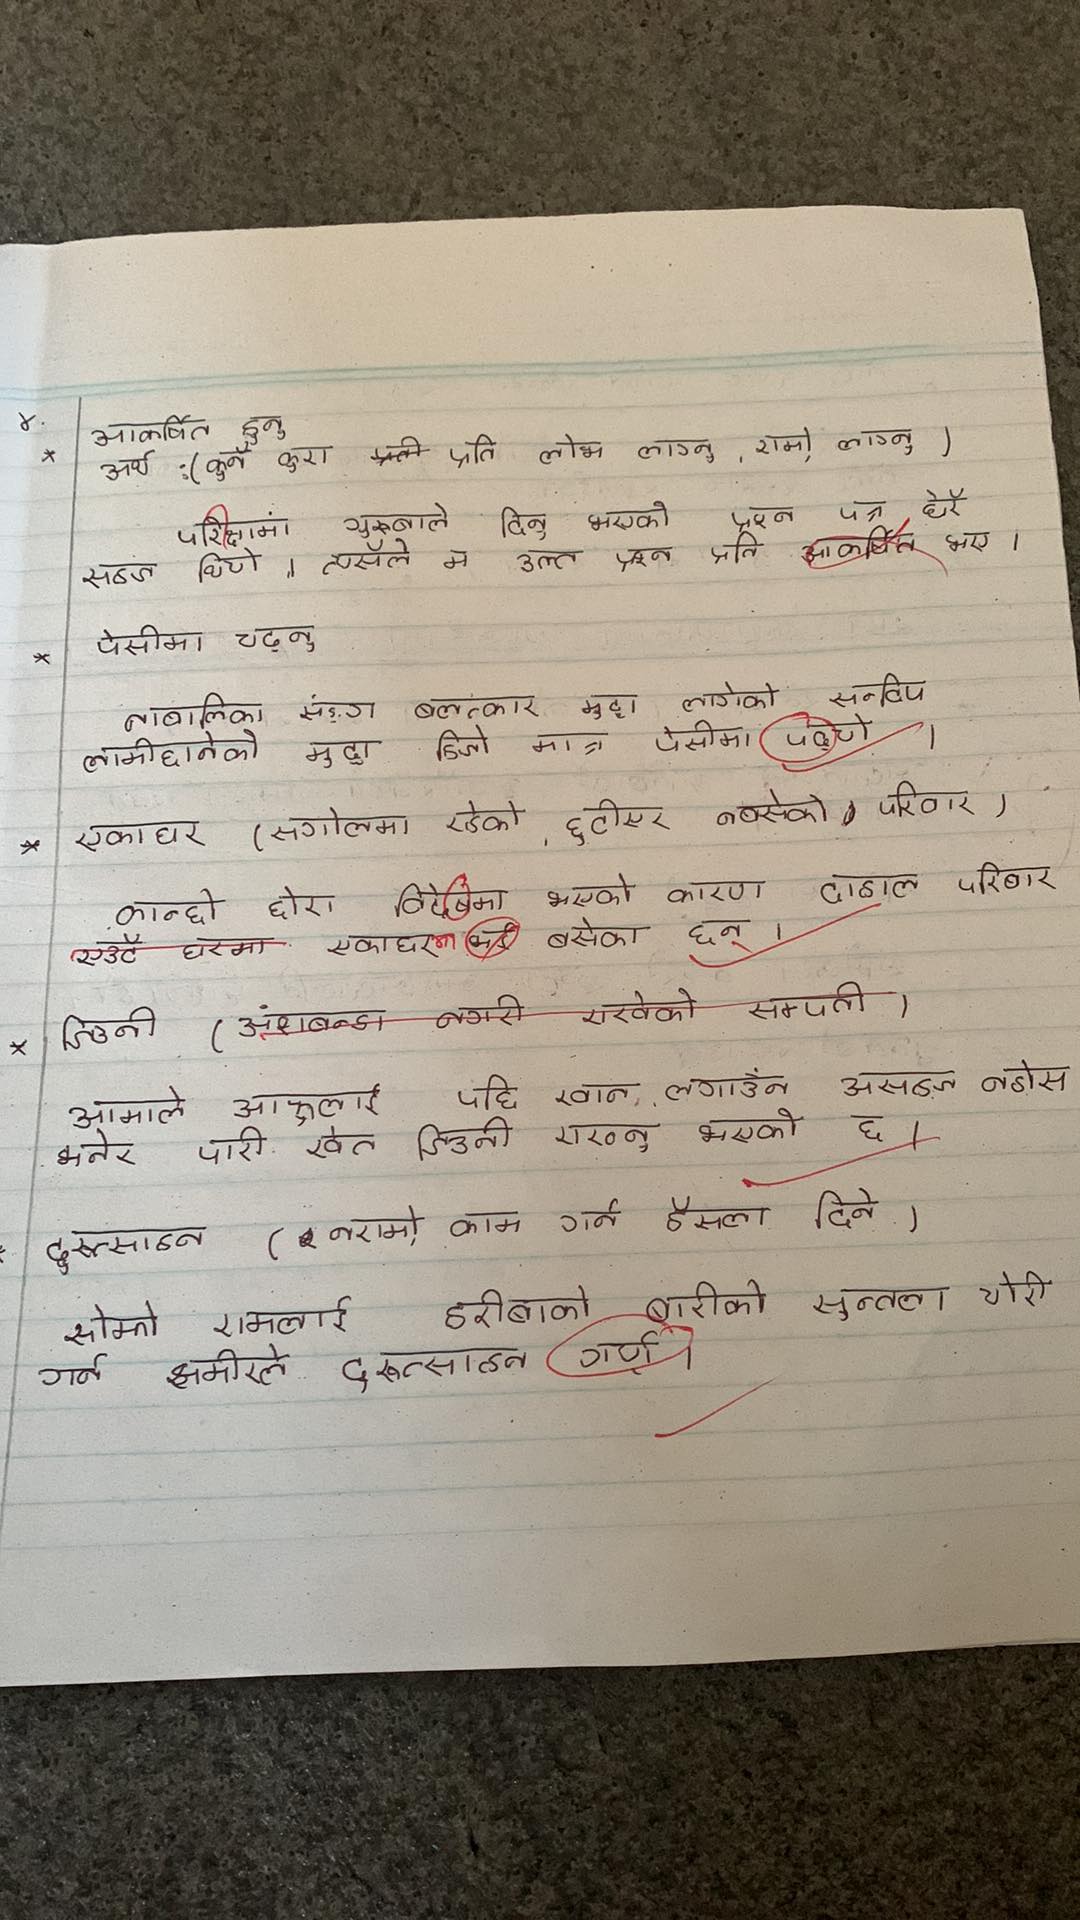 ४.
* आकर्षित हुनु
अर्थ :(कुनै कुरा प्रती प्रति लोभ लाग्नु, राम्रो लाग्नु)
परिक्षामा गुरुबाले दिनु भएको प्रश्न पत्र धेरै
सहज थियो । त्यसैले म उक्त प्रश्न प्रति आकर्षित भए ।
* पेसीमा चढ्नु
नाबालिका संङ्ग बलत्कार मुद्दा लागेको सन्दिप
लामीछानेको मुद्दा हिजो मात्र पेसीमा चढ्यो ।
* एकाघर (सगोलमा रहेको, छुटीएर नबसेको परिवार)
कान्छो छोरा विदेशमा भएको कारण दाहाल परिवार
एउटै घरमा एकाघरमा भई बसेका छन् ।
* जिउनी (अंशबन्डा नगरी राखेको सम्पती)
आमाले आफुलाई पछि खान, लगाउँन असहज नहोस
भनेर पारी खेत जिउनी राख्नु भएको छ ।
* दुरुत्साहन (नराम्रो काम गर्न हौसला दिने)
सोझो रामलाई हरीबाको बारीको सुन्तला चोरी
गर्न समीरले दुरुत्साहन गर्यो ।